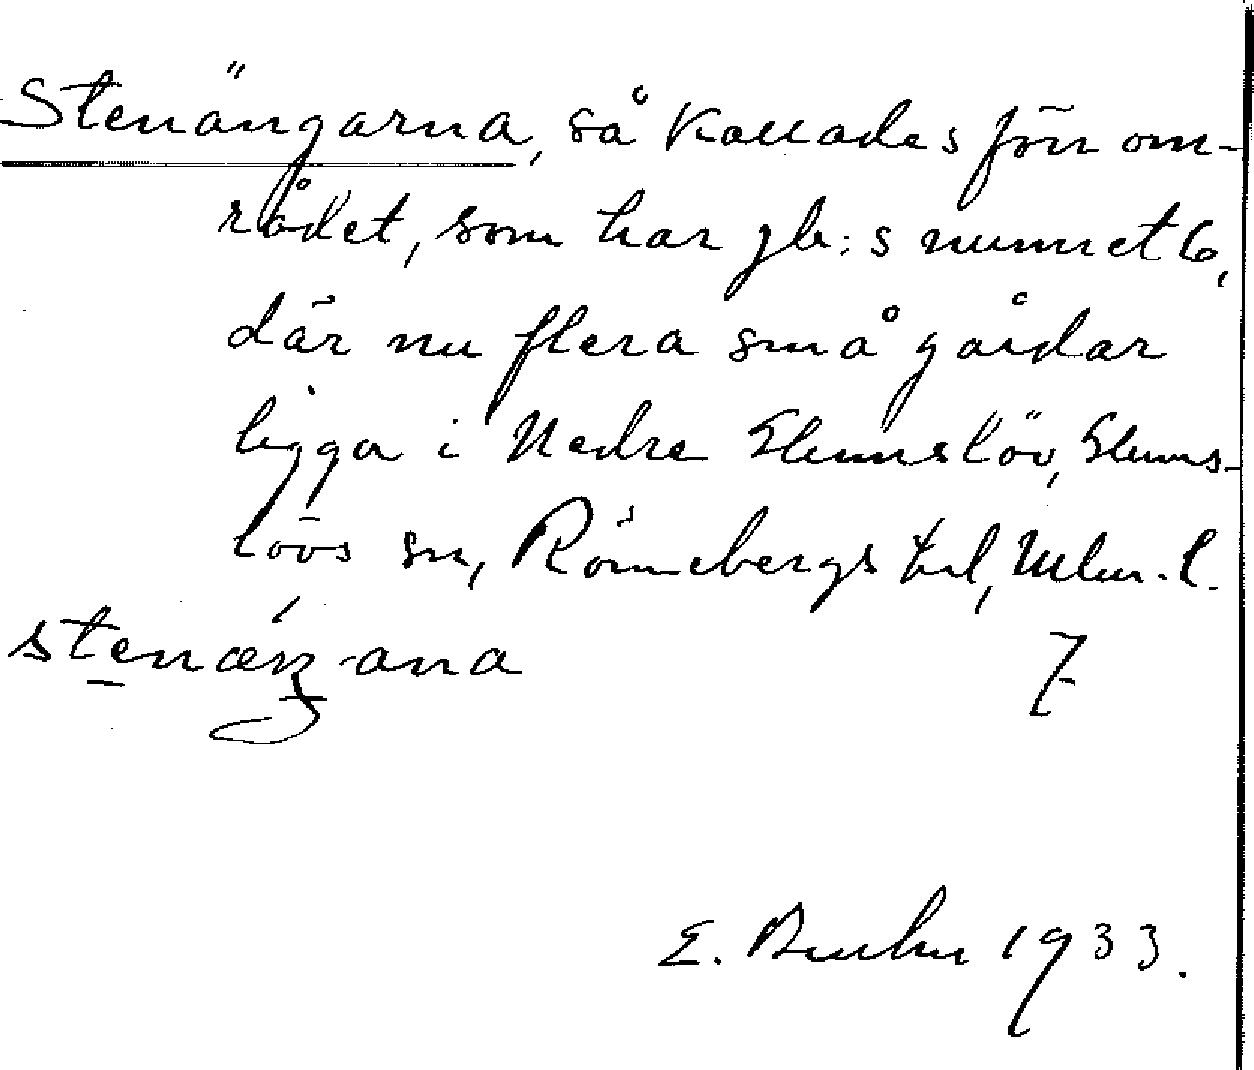 Stenängarna, så kallades förr om-
rådet, som har gb:s numret 6,
där nu flera små gårdar
ligga i Nedre Glumslöv, Glums-
lövs sn, Rönnebergs hd, Mlm. l.
stenæŋ·ana 7
E. 1933.